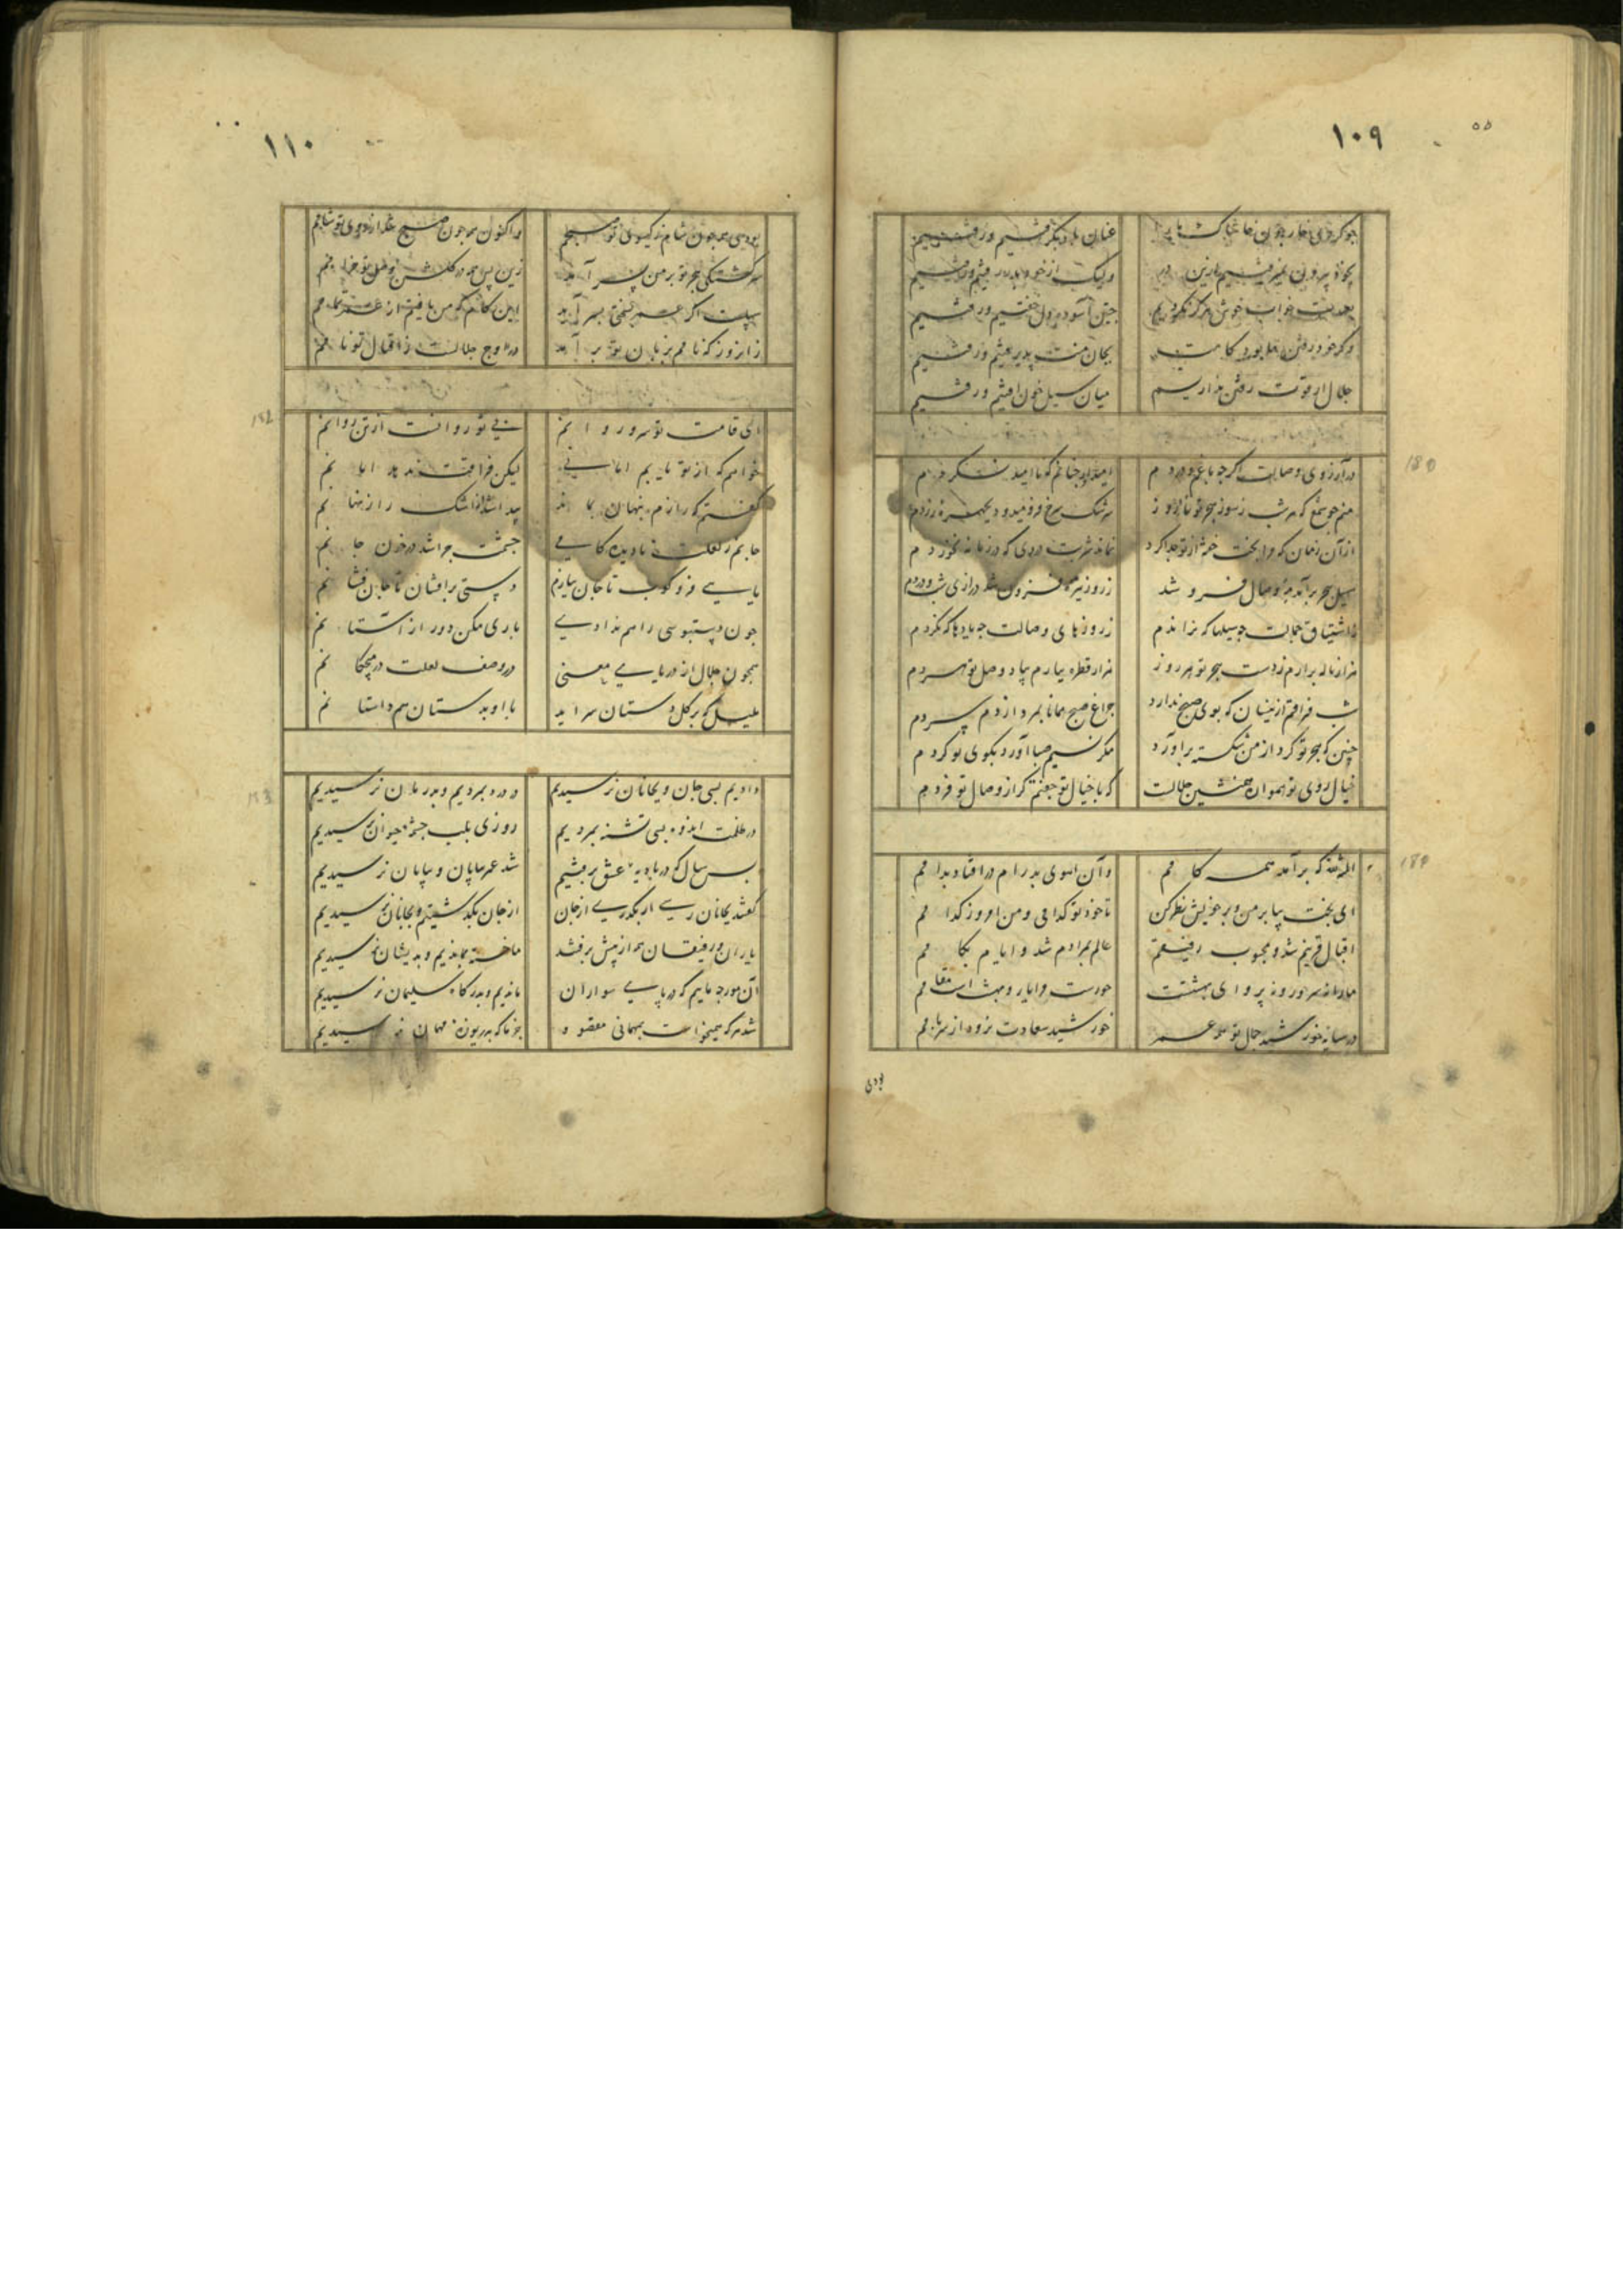 ١٠٩
عنان ما دیگر
خواب خوش هرگز نکردیم
جلال ار قوت رفتن نداریم
میان سیل خون افتیم و رفتیم
در آرزوی وصالت اگرچه باغم و دردم
امیدوار چنانم که ناامید نگردم
منم چو شمع که هر شب ز سوز هجر تو تا روز
سرشک سرخ فرو میدود بچهره زردم
از آن زمان که مرا بخت
سیل هجر برآمد مه وصال فرو شد
ز روز تیره فزون شد درازی شب دردم
ز اشتیاق جمالت چه سیلها که نراندم
ز روزهای وصالت چه یادها که نکردم
هزار ناله برآرم ز دست هجر تو هر روز
هزار قطره ببارم بیاد وصل تو هردم
شب فراقم از ینسان که بوی صبح ندارد
چراغ صبح همانا بمرد از دم سردم
چنین که هجر تو گرد از من شکسته برآورد
مگر نسیم صبا آورد بکوی تو گردم
خیال روی تو همواره همنشین جلالت
که با خیال تو جفتم گر از وصال تو فردم
المنة لله که برآمد همه کامم
وآن آهوی بدرام درافتاد بدامم
ای بخت بیا بر من و بر خویش نظر کن
تا خود تو کدامی و من امروز کدامم
اقبال قرینم شد و محبوب رفیقم
عالم بمرادم شد و ایام بکامم
ما را نه سر روضه پروای بهشتست
حورست مرا یار و بهشت است مقامم
در سایه خورشید جمال تو همه عمر
خورشید سعادت نرود از سر بامم
بودی
١١٠
بودی همچون شام ز گیسوی تو صبحم
و اکنون همه چون صبح شد از روی تو شامم
سرگشتگی هجر تو بر من بسر آمد
زین پس همه در گلشن وصل تو خرامم
این کام که من یافتم از عمر تمامم
زانروز که نامم بزبان تو برآمد
در اوج جلالت ز اقبال تو نامم
ای قامت تو سرو روانم
بی تو روانست از تن روانم
خواهم که از تو یابم امانی
لیکن فراقت ندهد امانم
گفتم که رازم پنهان بماند
پیدا شد از اشک راز نهانم
جانم ز لعلت نادیده کامی
چشمت چرا شد در خون جانم
پایی فرو کوب تا جان ببازم
دستی برافشان تا جان فشانم
چون دستبوسی راهم ندادی
باری مکن دور از آستانم
همچون جلال از دریای معنی
در وصف لعلت در میچکانم
بلبل که بر گل دستان سراید
با او بدستان همداستانم
دادیم بسی جان و بجانان نرسیدیم
در درد بمردیم و بدرمان نرسیدیم
در ظلمت اندوه بسی تشنه بمردیم
روزی بلب چشمه حیوان نرسیدیم
بس سال که در بادیه عشق برفتیم
شد عمر بپایان و بپایان نرسیدیم
گفتند بجانان رسی ار بگذری از جان
از جان بگذشتیم و بجانان نرسیدیم
یاران و رفیقان همه از پیش برفتند
ما خسته بماندیم و بدیشان نرسیدیم
آن مورچه ماییم که در پای سواران
ماندیم و بدرگاه سلیمان نرسیدیم
شد هرکه همیخواست بمهمانی مقصود
جز ما که بدریوزه مهمان نرسیدیم